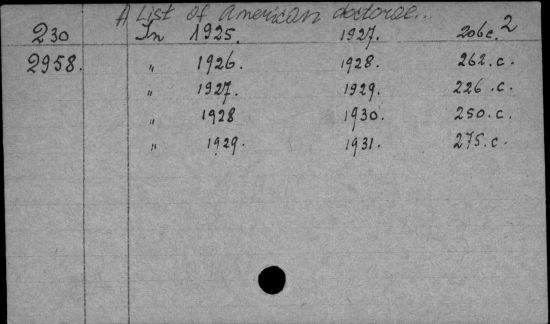 A List of American doctorae...
230 In 1925. 1927. 206c. 2
2958. " 1926. 1928. 262.c.
" 1927. 1929. 226.c.
" 1928 1930. 250.c.
" 1929. 1931. 275.c.